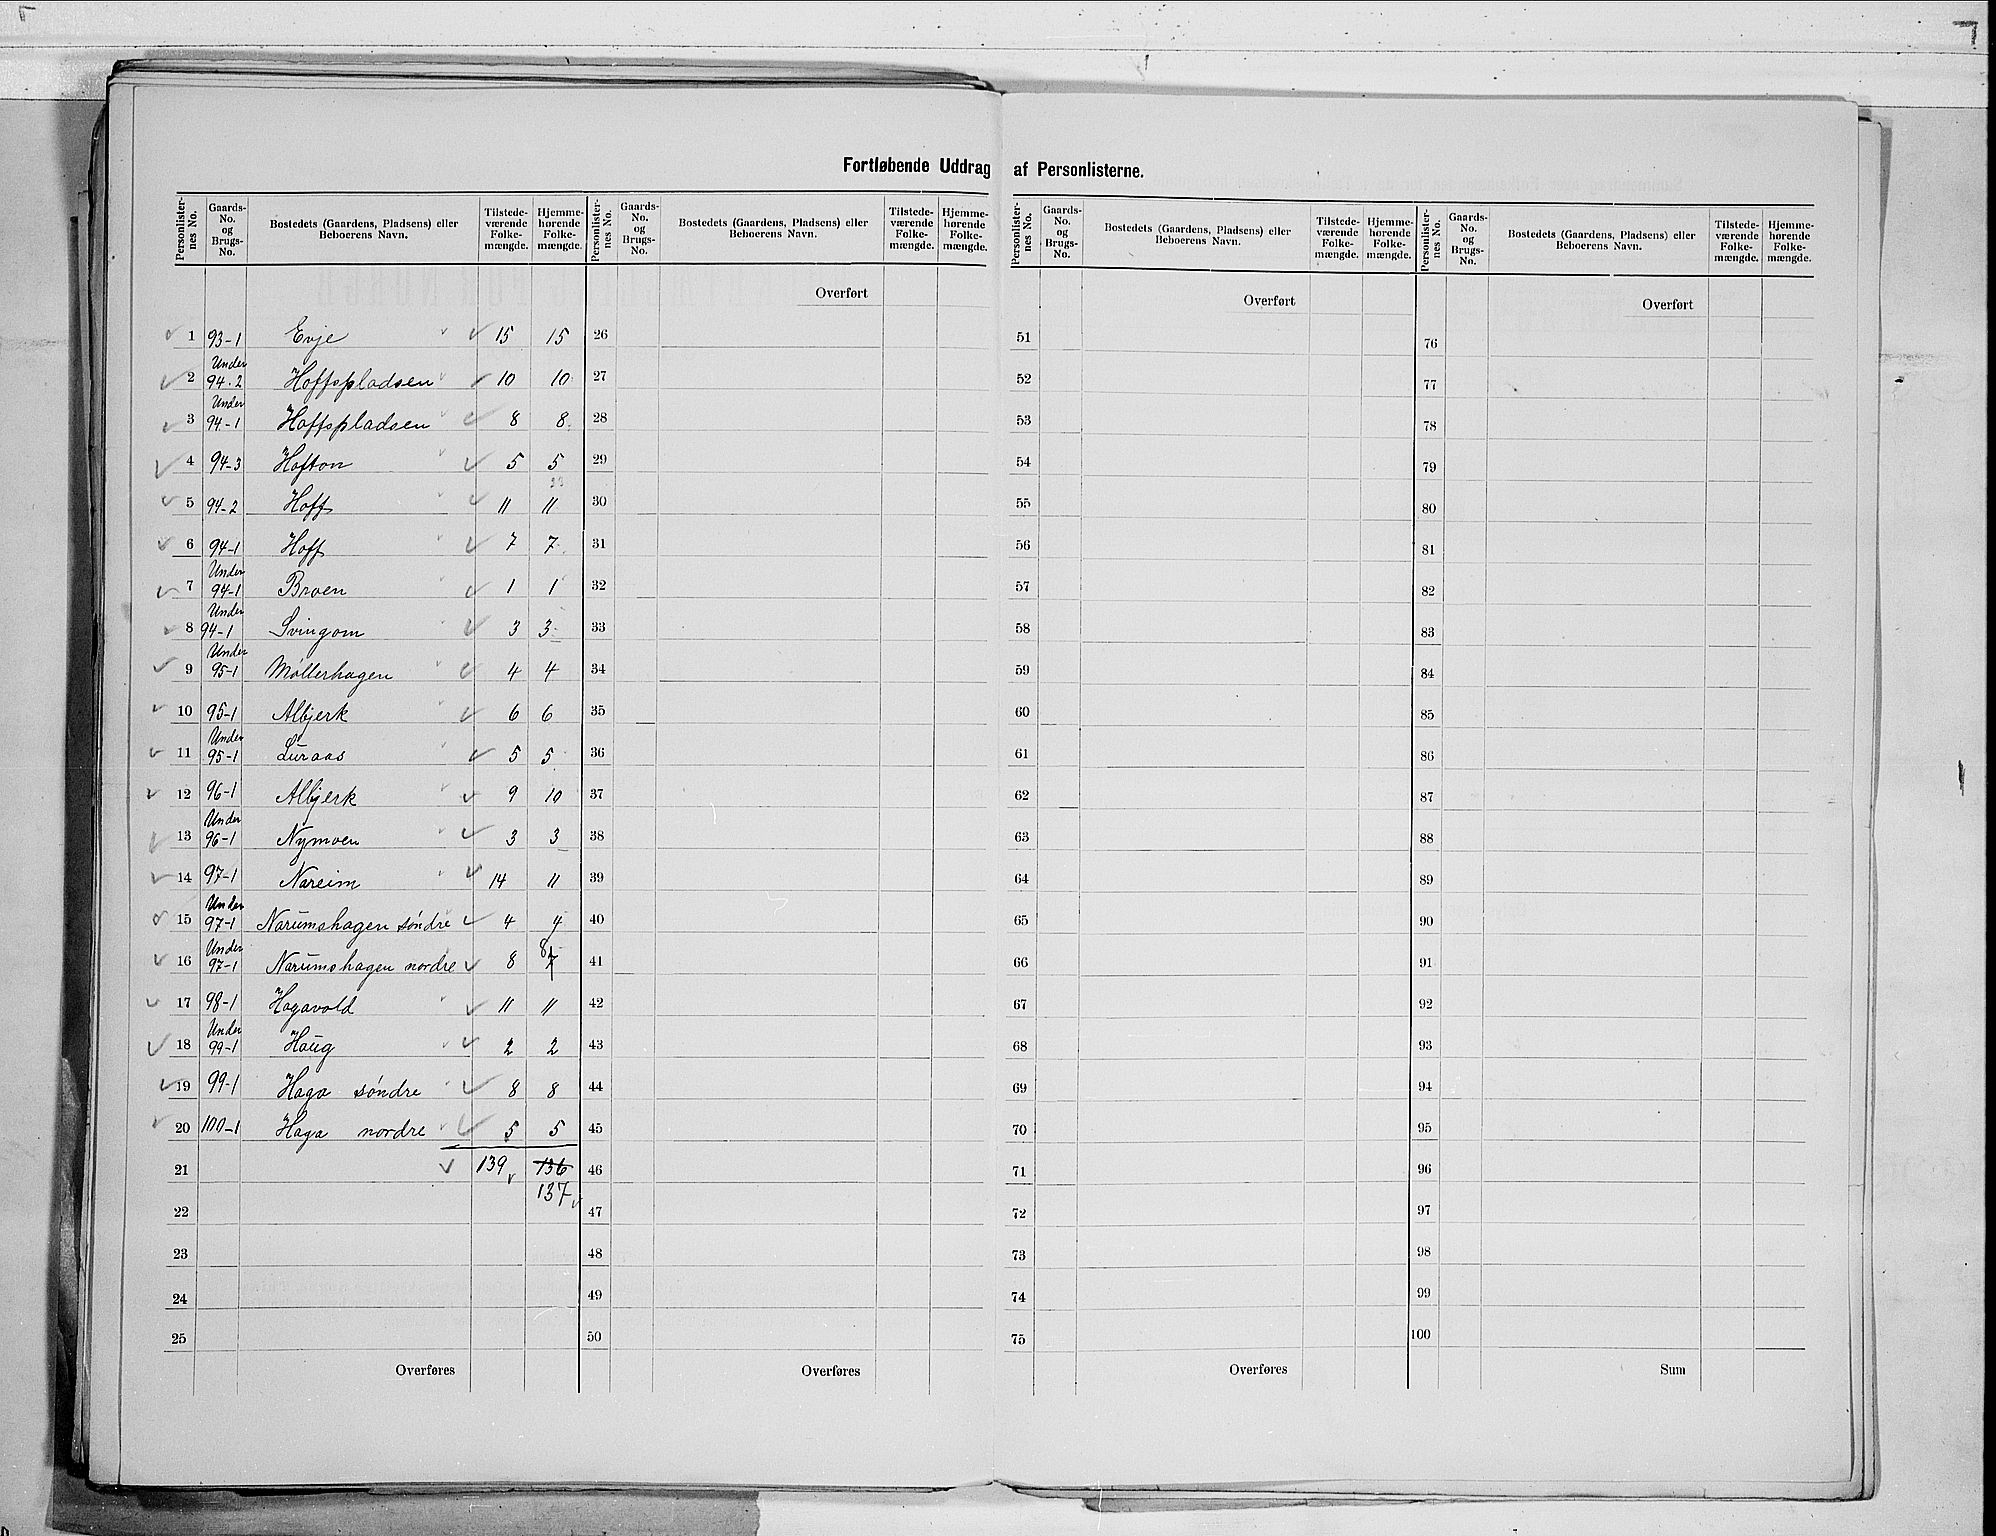 Fortløbende Uddrag af Personlisterne.
Personlister-nes No. | Gaards-No. og Brugs-No. | Bostedets (Gaardens, Pladsens) eller Beboerens Navn. | Tilstede-værende Folke-mængde. | Hjemme-hørende Folke-mængde. | Personlister-nes No. | Gaards-No. og Brugs-No. | Bostedets (Gaardens, Pladsens) eller Beboerens Navn. | Tilstede-værende Folke-mængde. | Hjemme-hørende Folke-mængde. | Personlister-nes No. | Gaards-No. og Brugs-No. | Bostedets (Gaardens, Pladsens) eller Beboerens Navn. | Tilstede-værende Folke-mængde. | Hjemme-hørende Folke-mængde. | Personlister-nes No. | Gaards-No. og Brugs-No. | Bostedets (Gaardens, Pladsens) eller Beboerens Navn. | Tilstede-værende Folke-mængde. | Hjemme-hørende Folke-mængde.
Overført Overført Overført
1 93-1 Evje 15 15 26 51 76
2 Under 94-2 Hoffspladsen 10 10 27 52 77
3 Under 94-1 Hoffspladsen 8 8 28 53 78
4 94-3 Hofton 5 5 29 54 79
5 94-2 Hoff 11 11 30 55 80
6 94-1 Hoff 7 7 31 56 81
7 Under 94-1 Broen 1 1 32 57 82
8 Under 94-1 Svingom 3 3 33 58 83
9 Under 95-1 Møllerhagen 4 4 34 59 84
10 95-1 Albjerk 6 6 35 60 85
11 Under 95-1 Luraas 5 5 36 61 86
12 96-1 Albjerk 9 10 37 62 87
13 Under 96-1 Nymoen 3 3 38 63 88
14 97-1 Nareim 14 11 39 64 89
15 Under 97-1 Narumshagen søndre 4 4 40 65 90
16 Under 97-1 Narumshagen nordre 8 8 7 41 66 91
17 98-1 Hagavold 11 11 42 67 92
18 Under 99-1 Haug 2 2 43 68 93
19 99-1 Haga søndre 8 8 44 69 94
20 100-1 Haga nordre 5 5 45 70 95
21 139 136 46 71 96
137
22 47 72 97
23 48 73 98
24 49 74 99
25 50 75 100
Overføres Overføres Overføres Sum